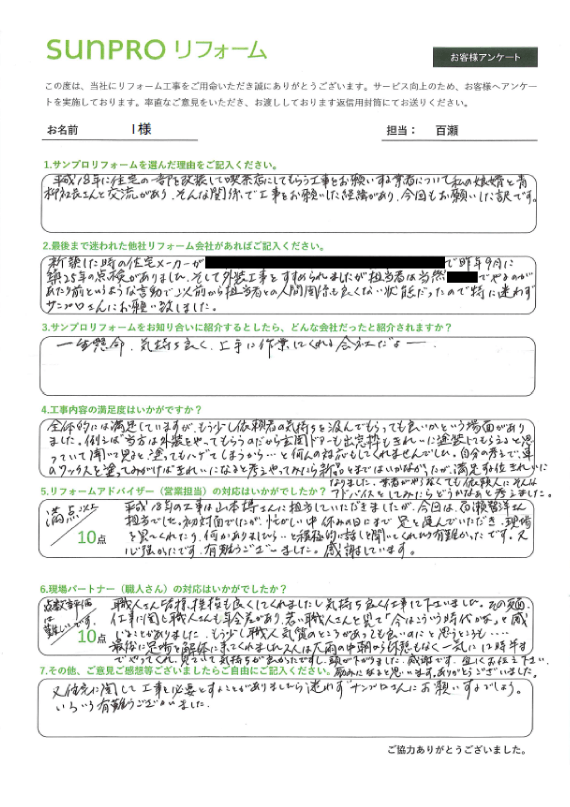 SUNPRO リフォーム
お客様アンケート
この度は、当社にリフォーム工事をご用命いただき誠にありがとうございます。サービス向上のため、お客様へアンケー
トを実施しております。率直なご意見をいただき、お渡ししております返信用封筒にてお送りください。
お名前 I様 担当： 百瀬
1.サンプロリフォームを選んだ理由をご記入ください。
平成18年に住宅の一部を改装して喫茶店にしてもらう工事をお願いする業者について私の娘婿と青
柳社長さんと交流があり、そんな関係で工事をお願いした経緯があり、今回もお願いした訳です。
2.最後まで迷われた他社リフォーム会社があればご記入ください。
新築した時の住宅メーカーが で昨年9月に
築25年の点検がありました。そして外装工事をすすめられましたが担当者は当然 でやるのが
あたり前というような言動で以前から担当者との人間関係も良くない状態だったので特に迷わず
サンプロさんにお願い致しました。
3.サンプロリフォームをお知り合いに紹介するとしたら、どんな会社だったと紹介されますか？
一生懸命、気持ち良く、上手に作業してくれる会社だよー。
4.工事内容の満足度はいかがですか？
全体的には満足していますが、もう少し依頼者の気持ちを汲んでもらっても良いかという場面があり
ました。例えば当方は外装をやってもらうのだから玄関ドアーも出窓枠もきれいに塗装してもらえると思
っていて聞いて見ると塗ってもハゲてしまうから…と何んの対応もしてくれませんでした。自分の考えで、車
のワックスを塗ってみがけばきれいになると考えやってみたら新品とまではいかないが、満足する位きれいに
なりました。業者がやらなくても依頼人にそんな
アドバイスをしてみたらどうかなあと考えました。
5.リフォームアドバイザー（営業担当）の対応はいかがでしたか？
満点以上
10点
平成18年の工事は山本博さんに担当していただきましたが、今回は、百瀬智洋さん
担当でした。初対面でしたが、忙がしい中休みの日にまで足を運んでいただき、現場
を見てくれたり、何かありましたら…と積極的に話しを聞いてくれたり有難かったです。又
心強かったです。有難うございました。感謝しています。
6.現場パートナー（職人さん）の対応はいかがでしたか？
点数評価
は
難しいです。
10点
職人さん皆様、挨拶も良くしてくれましたし気持ち良く仕事して下さいました。その反面、
仕事に関し職人さんも年令差があり、若い職人さんを見て「今はこういう時代かな」と感
じることがありました。もう少し職人気質のところがあっても良いのにと思うところも…。
最後に足場を解体に来てくれました2人は大雨の中朝から休憩もなく一気に12時半ま
でやってくれ、見ていて気持ちが良かったですし、頭が下がりました。感謝です。宜しくお伝え下さい。
励みになると思います。ありがとうございました。
7.その他、ご意見ご感想等ございましたらご自由にご記入ください。
又住宅に関して工事を必要とすることがありましたら迷わずサンプロさんにお願いするでしょう。
いろいろ有難うございました。
ご協力ありがとうございました。